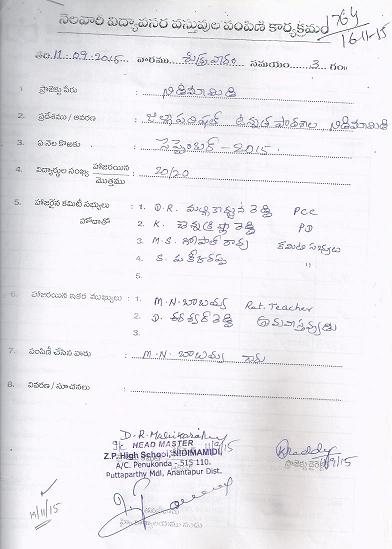 నెలవారీ విద్యావసర వస్తువుల పంపిణీ కార్యక్రమం
764
16-11-15
తేది. 11-09-2015 వారము శుక్రవారం సమయం 3 గం
1. ప్రాజెక్టు పేరు : నిడిమామిడి
2. ప్రదేశము / ఆవరణ : జిల్లా పరిషత్ ఉన్నత పాఠశాల నిడిమామిడి
3. ఏ నెల కొరకు : సెప్టెంబర్ - 2015
4. విద్యార్థుల సంఖ్య హాజరయిన / మొత్తము : 20/20
5. హాజరైన కమిటీ సభ్యులు : 1. D.R. మల్లికార్జున రెడ్డి PCC
హోదాతో 2. K. చెన్నకృష్ణా రెడ్డి PD
3. M.S. గోపాల్ రావు కమిటీ సభ్యులు
4. 11
5.
6. హాజరయిన ఇతర ముఖ్యులు : 1. M.N. బాబయ్య Ret. Teacher
2. D. ఈశ్వర్ రెడ్డి గ్రామవాస్తవ్యుడు
3.
7. పంపిణీ చేసిన వారు : M.N. బాబయ్య గారు
8. వివరణ / సూచనలు :
D.R. Mallikarjun
11/9/15
HEAD MASTER
Z.P. High School, NIDIMAMIDI,
A/C. Penukonda - 515 110.
Puttaparthy Mdl, Anantapur Dist.
Kreddy
11/9/15
ప్రాజెక్టు డైరెక్టర్
16/11/15